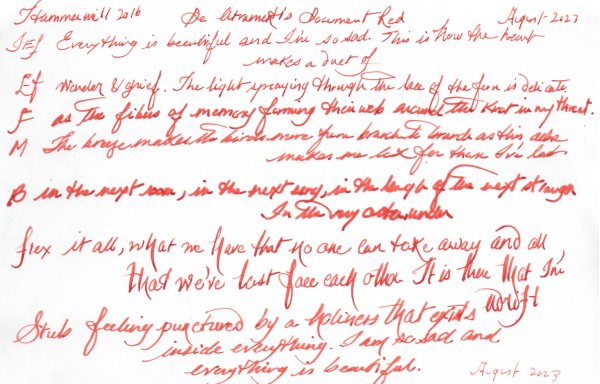 Hammermill 2016 De Atramentis Document Red August 2023
IEF Everything is beautiful and I'm so sad. This is how the heart
makes a duet of
EF wonder & grief. The light spraying through the lace of the fern is delicate
F as the fibers of memory forming their web around the knot in my throat.
M The breeze makes the birds move from branch to branch as this ache
makes me look for those I've lost
B in the next room, in the next song, in the laugh of the next stranger
In the very under
flex it all, what we have that no one can take away and all
that we've lost face each other It is there that I'm
adrift
Stub feeling punctured by a holiness that exists
inside everything. I am so sad and
everything is beautiful. August 2023